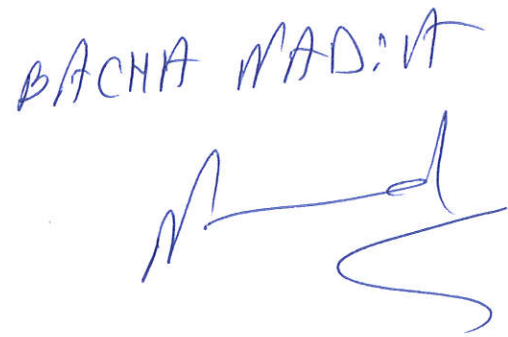 BACHA NADiA